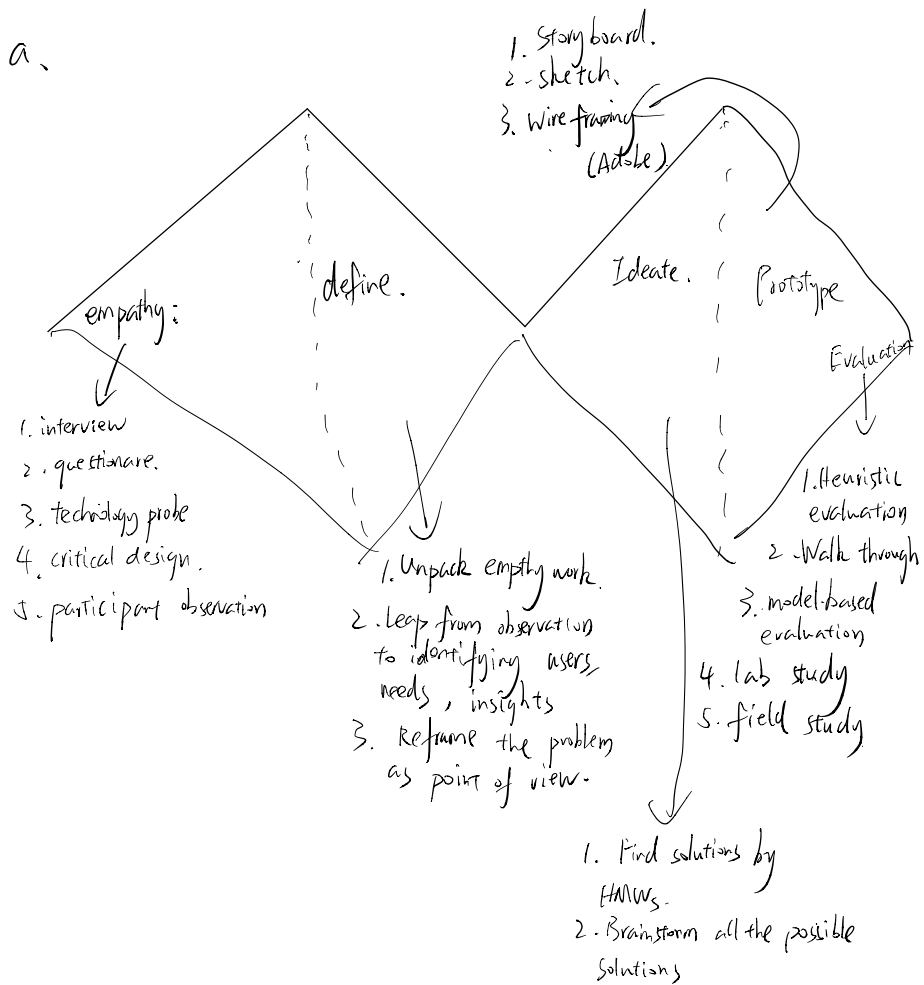 a、
1. Storyboard.
2. sketch.
3. Wireframing
(Adobe).
empathy:
define.
Ideate.
Prototype
Evaluation
1. interview
2. questionare.
3. technology probe
4. critical design.
5. participant observation
1. Unpack empthy work.
2. Leap from observation
to identifying users,
needs, insights
3. Reframe the problem
as point of view.
1. Heuristic
evaluation
2. Walk through
3. model-based
evaluation
4. lab study
5. field study
1. Find solutions by
HMWs.
2. Brainstorm all the possible
solutions